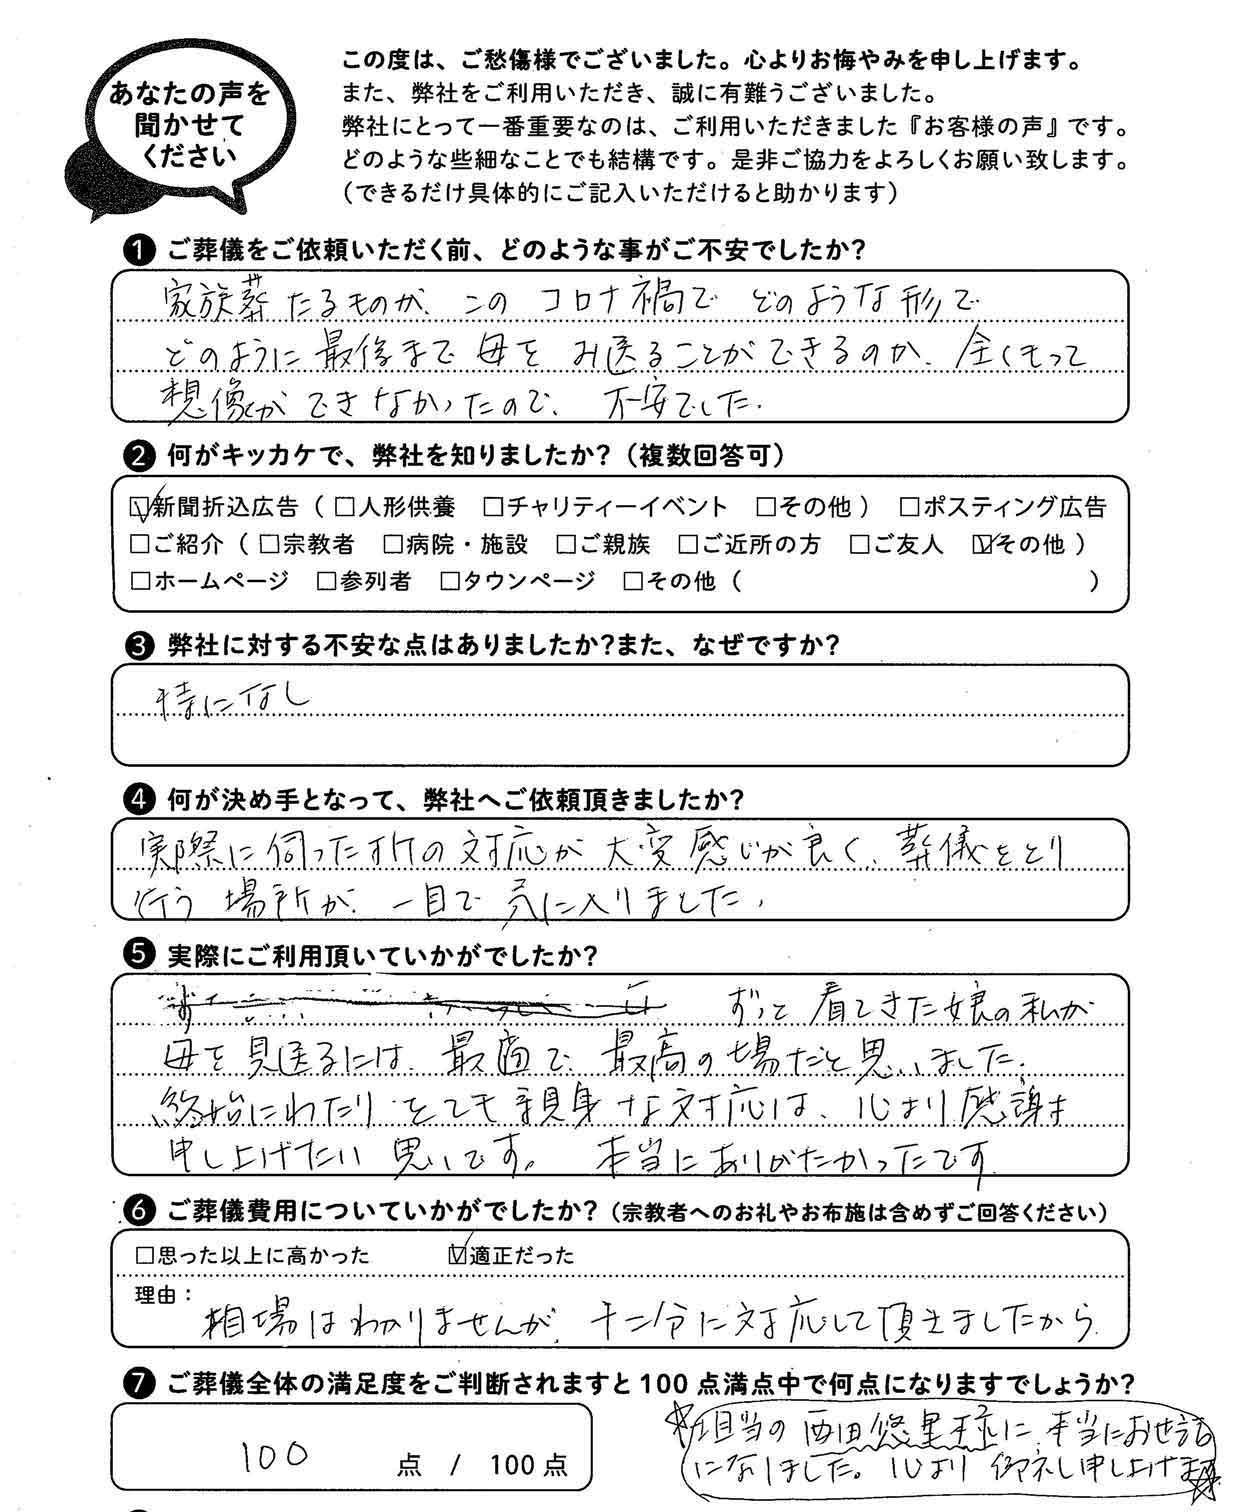 あなたの声を
聞かせて
ください
この度は、ご愁傷様でございました。心よりお悔やみを申し上げます。
また、弊社をご利用いただき、誠に有難うございました。
弊社にとって一番重要なのは、ご利用いただきました『お客様の声』です。
どのような些細なことでも結構です。是非ご協力をよろしくお願い致します。
（できるだけ具体的にご記入いただけると助かります）
❶ ご葬儀をご依頼いただく前、どのような事がご不安でしたか？
家族葬たるものが、この コロナ禍で どのような形で
どのように最後まで 母を お送ることができるのか、全くもって
想像ができなかったので、不安でした.
❷ 何がキッカケで、弊社を知りましたか？（複数回答可）
☑新聞折込広告（ □人形供養 □チャリティーイベント □その他 ） □ポスティング広告
□ご紹介（ □宗教者 □病院・施設 □ご親族 □ご近所の方 □ご友人 ☑その他 ）
□ホームページ □参列者 □タウンページ □その他（ ）
❸ 弊社に対する不安な点はありましたか？また、なぜですか？
特になし
❹ 何が決め手となって、弊社へご依頼頂きましたか？
実際に伺った所の対応が大変感じが良く、葬儀をとり
行う 場所が、一目で気に入りました.
❺ 実際にご利用頂いていかがでしたか？
ずっと 着てきた娘の私が
母を見送るには、最適で、最高の場だと思いました.
終始にわたり とても親身な対応は、心より感謝
申し上げたい思いです。 本当にありがたかったです.
❻ ご葬儀費用についていかがでしたか？（宗教者へのお礼やお布施は含めずご回答ください）
□思った以上に高かった ☑適正だった
理由：
相場はわかりませんが、十二分に対応して頂きましたから.
❼ ご葬儀全体の満足度をご判断されますと 100 点満点中で何点になりますでしょうか？
100 点 / 100 点
☆担当の 西田悠里様に、本当にお世話
になりました。心より 御礼し申し上げます☆